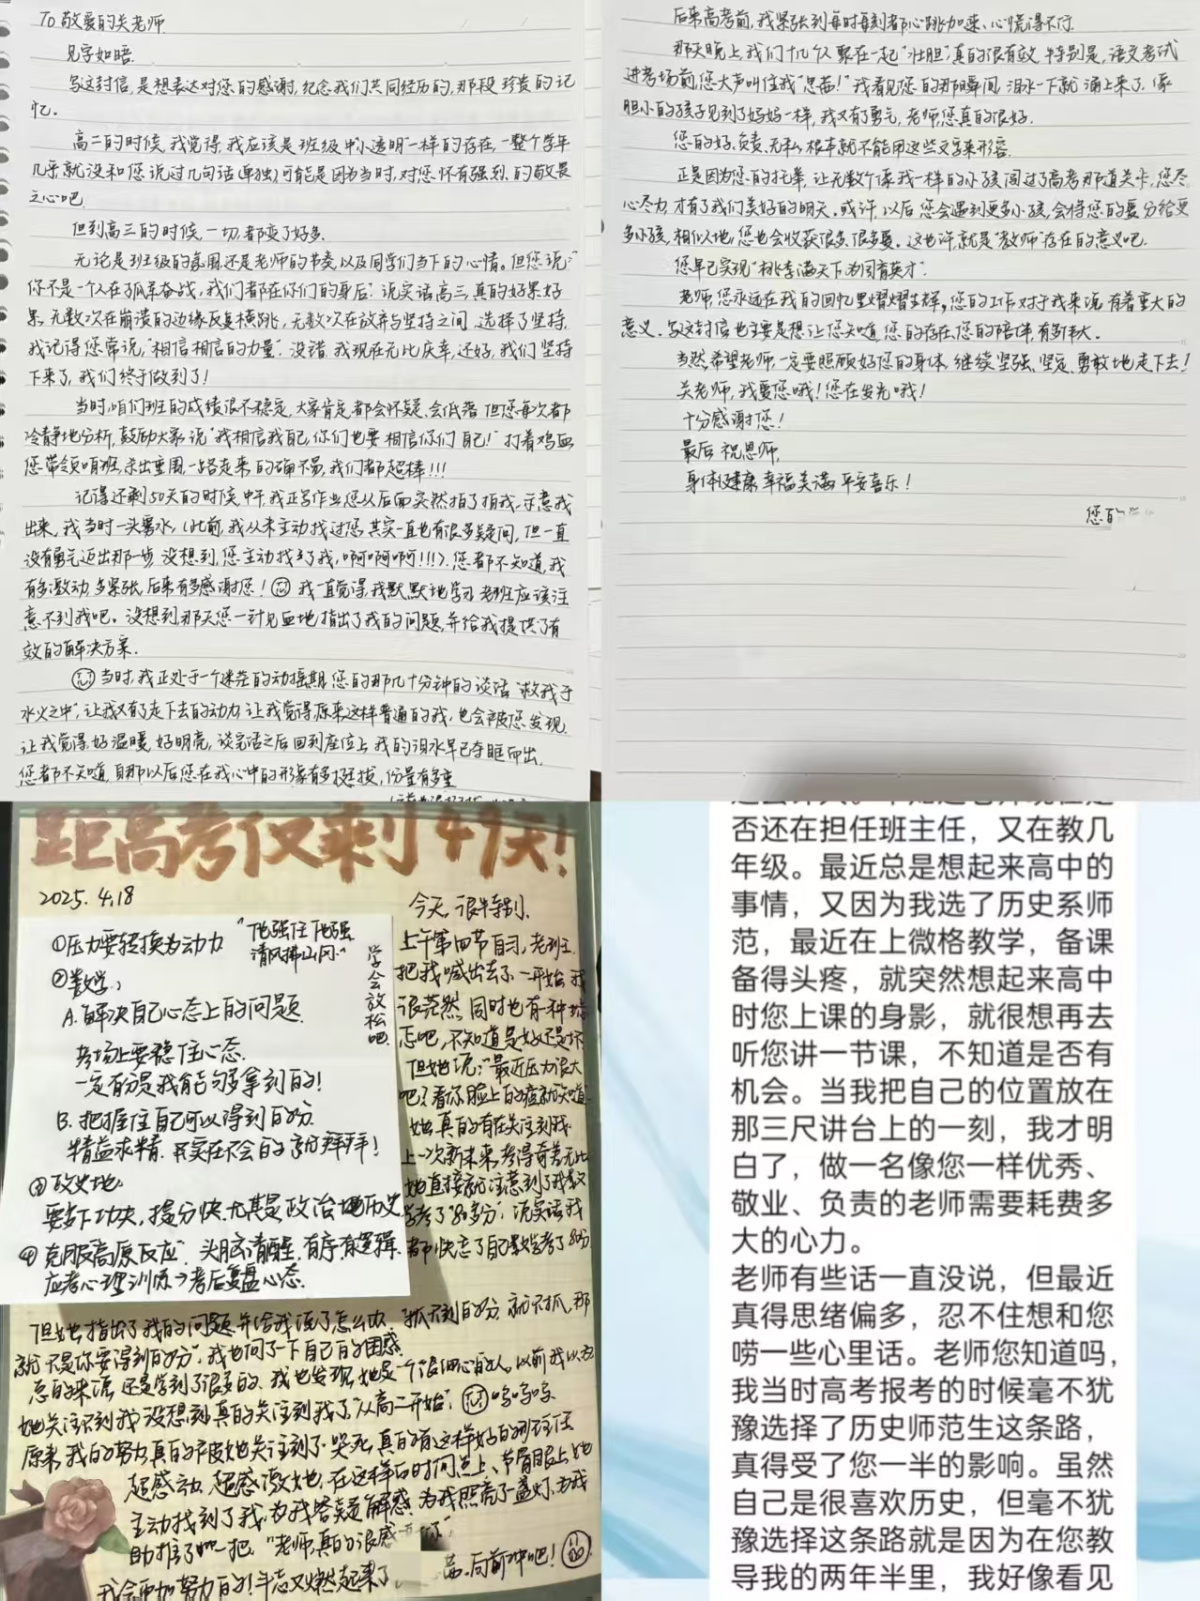 To 敬爱的关老师
见字如晤.
写这封信,是想表达对您的感谢,纪念我们共同经历的,那段珍贵的记
忆.
高二的时候,我觉得,我应该是班级中"小透明"一样的存在,一整个学年
几乎就没和您说过几句话(单独)可能是因为当时,对您怀有强烈的敬畏
之心吧.
但到高三的时候,一切都变了好多.
无论是班级的氛围还是老师的节奏以及同学们当下的心情。但您说:"
你不是一个人在孤军奋战,我们都在你们的身后."说实话高三真的好累好
累,无数次在崩溃的边缘反复横跳,无数次在放弃与坚持之间,选择了坚持.
我记得您常说,"相信相信的力量".没错,我现在无比庆幸,还好,我们坚持
下来了,我们终于做到了!
当时,咱们班的成绩很不稳定,大家肯定都会怀疑,会低落,但您每次都
冷静地分析,鼓励大家,说"我相信我自己,你们也要相信你们自己!"打着鸡血
您带领咱班,杀出重围,一路走来的确不易,我们都超棒!!!
记得还剩50天的时候,中午,我正写作业,您从后面突然拍了拍我,示意我
出来,我当时一头雾水,(此前,我从未主动找过您,其实一直也有很多疑问,但一直
没有勇气迈出那一步,没想到,您主动找了我,啊啊啊啊!!!).您都不知道,我
有多激动,多紧张,后来有多感谢您!我一直觉得,我默默地学习,老班应该注
意不到我吧。没想到那天您一针见血地指出了我的问题,并给我提供了有
效的解决方案.
当时,我正处于一个迷茫的动摇期,您的那几十分钟的谈话"救我于
水火之中",让我又有了走下去的动力,让我觉得原来这样普通的我,也会被您发现.
让我觉得好温暖,好明亮,谈完话之后回到座位上,我的泪水早已夺眶而出.
您都不知道,自那以后您在我心中的形象有多挺拔,份量有多重
后来高考前,我紧张到每时每刻都心跳加速、心慌得不行.
那天晚上,我们十几个人聚在一起"壮胆",真的很有效,特别是,语文考试
进考场前,您大声叫住我我看见您的那瞬间,泪水一下就涌上来了,像
胆小的孩子见到了妈妈一样,我又有了勇气,老师您真的很好.
您的好、负责、无私,根本就不能用这些文字来形容.
正是因为您的托举,让无数个像我一样的小孩闯过了高考那道关卡,您尽
心尽力,才有了我们美好的明天。或许,以后您会遇到更多小孩,会将您的爱分给更
多小孩,相似地,您也会收获很多很多爱。这也许,就是"教师"存在的意义吧.
您早已实现"桃李满天下,为国育英才".
老师,您永远在我的回忆里熠熠生辉,您的工作对于我来说,有着重大的
意义.写这封信也主要是想让您知道,您的存在,您的陪伴,有多伟大.
当然,希望老师,一定要照顾好您的身体,继续坚强、坚定、勇敢地走下去!
关老师,我爱您哦!您在发光哦!
十分感谢您!
最后,祝恩师,
身体健康,幸福美满,平安喜乐!
您的
距高考仅剩49天!
2025.4.18
①压力要转换为动力
"他强任他强
清风拂山冈."
学会放松吧.
②数学:
A.解决自己心态上的问题.
考场上要稳住心态.
一定有分是我能够拿到的!
B.把握住自己可以得到的分.
精益求精.其实在不会的分拜拜!
③政史地:
要多下功夫,提分快.尤其是政治地历史
④克服"高原反应".头脑清醒,有序有逻辑.
应考心理训练→考后复盘心态.
今天,很特别.
上午第四节自习,老班
把我喊出去了.一开始我
很茫然,同时也有一种
吧,不知道是好还是坏
但她说:"最近压力很大
吧?看你脸上的痘就知道
她真的有在关注到我
上一次新未来,考得奇差无比
她直接就注意到了我数
学考了"80多分",说实话我
都快忘了自己数学考了80分
但她指出了我的问题,并给我讲了怎么办."抓不到的分,就不抓,那
就不是你要得到的分".我也问了一下自己的困惑
总的来说,还是学到了很多的.我也发现她是一个很细心的人,以前我以为
她关注不到我,没想到真的关注到我了"从高二开始".呜呜呜
原来,我的努力真的有被她关注到了.哭死,真的有这样好的班主任
超感动,超感激她,在这样的时间点上、节骨眼上,她
主动找到了我,为我答疑解惑.为我照亮了一盏灯,为我
助推了一把."老师,真的很感
我会更加努力的!斗志又燃起来了
向前冲吧!
否还在担任班主任,又在教几
年级。最近总是想起来高中的
事情,又因为我选了历史系师
范,最近在上微格教学,备课
备得头疼,就突然想起来高中
时您上课的身影,就很想再去
听您讲一节课,不知道是否有
机会。当我把自己的位置放在
那三尺讲台上的一刻,我才明
白了,做一名像您一样优秀、
敬业、负责的老师需要耗费多
大的心力。
老师有些话一直没说,但最近
真得思绪偏多,忍不住想和您
唠一些心里话。老师您知道吗,
我当时高考报考的时候毫不犹
豫选择了历史师范生这条路,
真得受了您一半的影响。虽然
自己是很喜欢历史,但毫不犹
豫选择这条路就是因为在您教
导我的两年半里,我好像看见